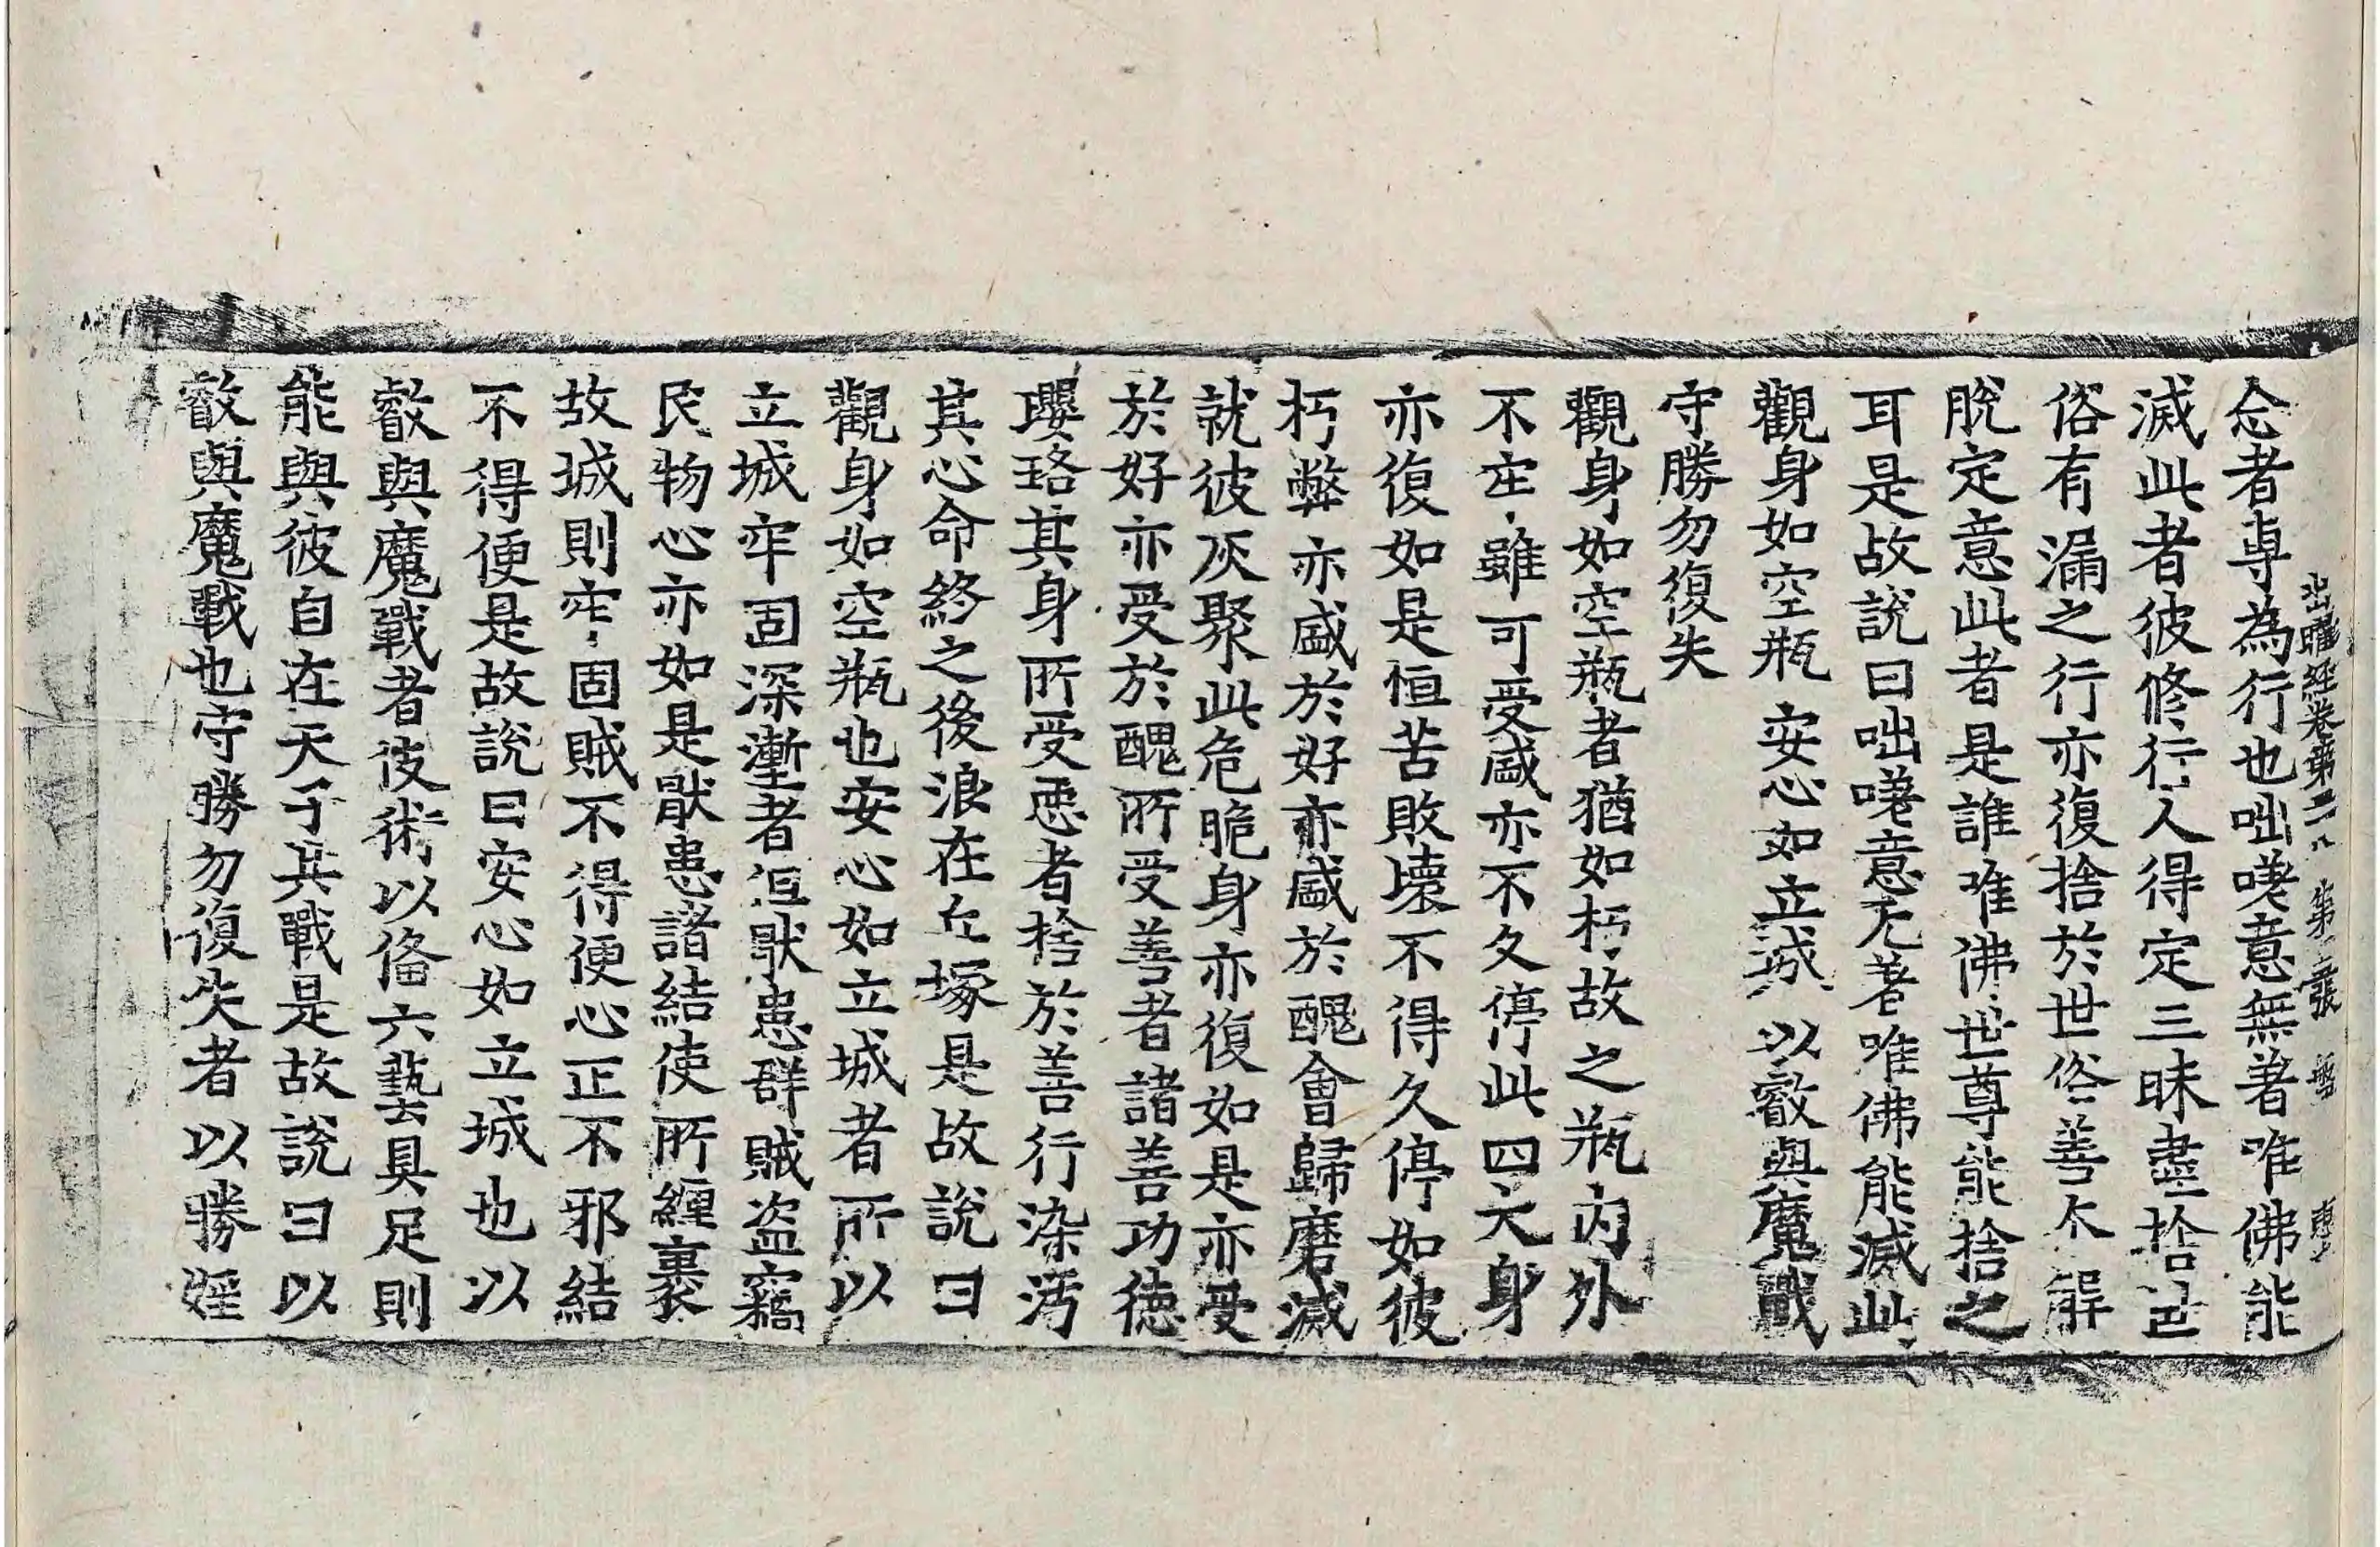 出曜經卷第二八 第二張 盤
念者專為行也咄嗟意無著唯佛能
滅此者彼修行人得定三昧盡捨世
俗有漏之行亦復捨於世俗善本解
脫定意此者是誰唯佛世尊能捨之
耳是故說曰咄嗟意无著唯佛能滅此
觀身如空瓶 安心如立城 以叡與魔戰
守勝勿復失
觀身如空瓶者猶如朽故之瓶內外
不牢雖可受盛亦不久停此四大身
亦復如是恒苦敗壞不得久停如彼
朽弊亦盛於好亦盛於醜會歸磨滅
就彼灰聚此危脆身亦復如是亦受
於好亦受於醜所受善者諸善功德
瓔珞其身所受惡者捨於善行染污
其心命終之後浪在丘塚是故說曰
觀身如空瓶也安心如立城者所以
立城牢固深壍者但猒患群賊盜竊
民物心亦如是猒患諸結使所纏裹
故城則牢固賊不得便心正不邪結
不得便是故說曰安心如立城也以
叡與魔戰者彼術以俻六藝具足則
能與彼自在天子共戰是故說曰以
叡與魔戰也守勝勿復失者以勝婬